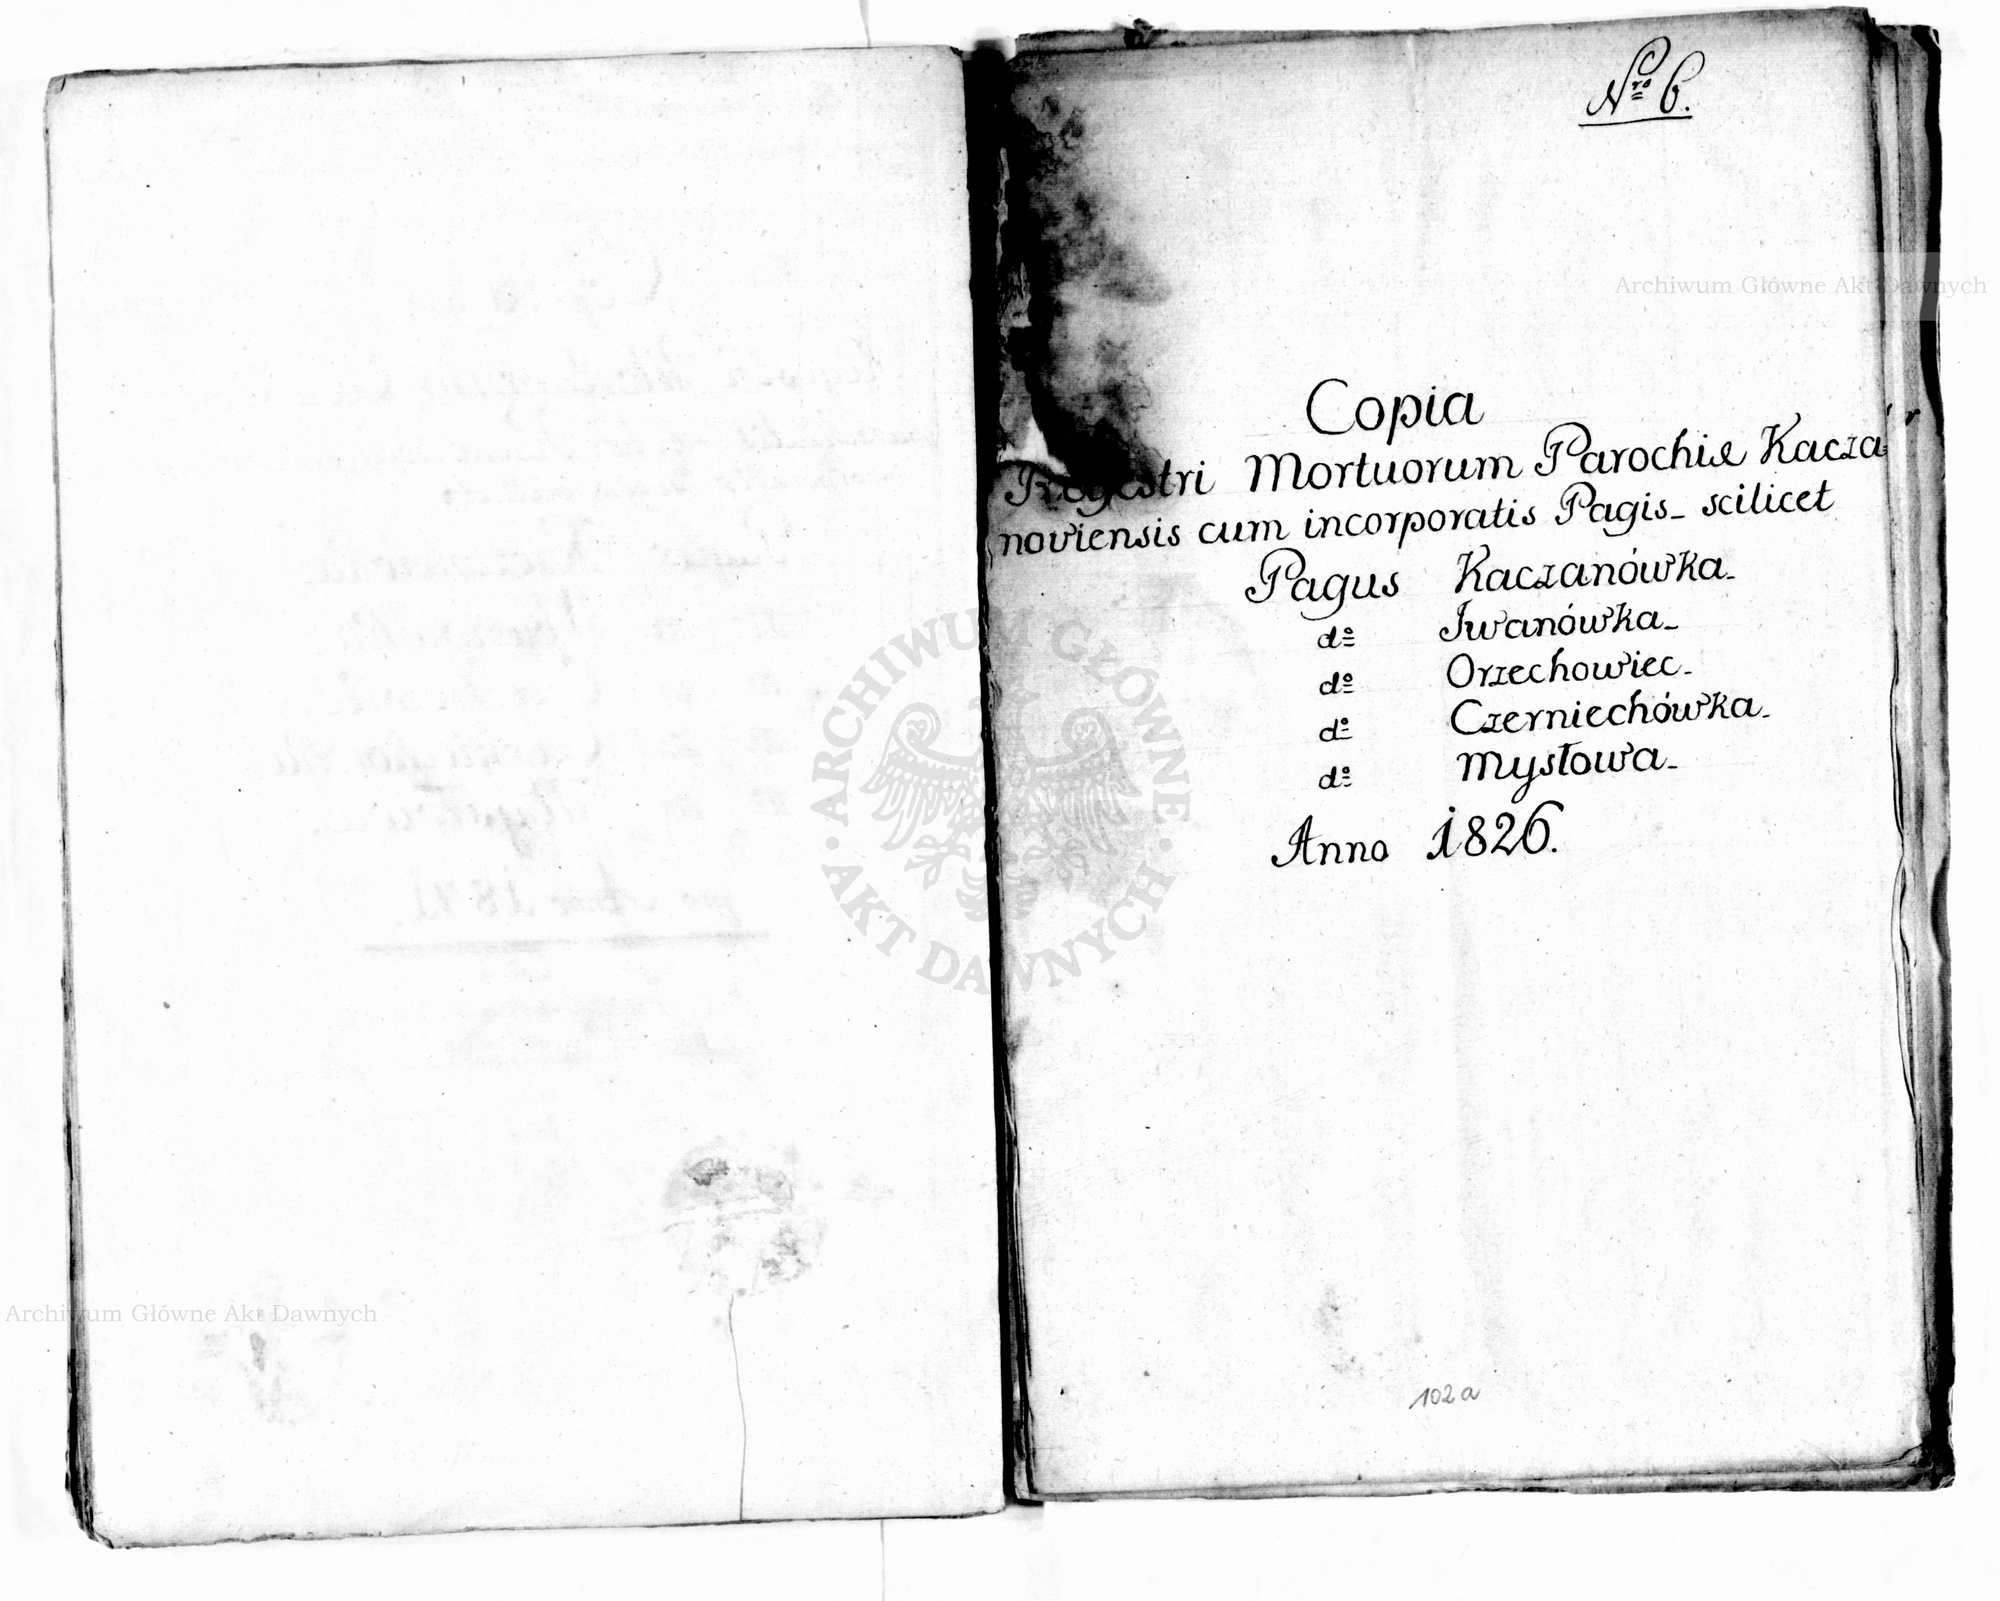 Nro 6.
Archiwum Główne Akt Dawnych
Copia
Regestri Mortuorum Parochiæ Kacza
noviensis cum incorporatis Pagis_ scilicet
Pagus Kaczanówka_
do Iwanówka_
do Orzechowiec_
do Czerniechówka_
do Mysłowa_
Anno 1826.
ARCHIWUM GŁÓWNE
AKT DAWNYCH
Archiwum Główne Akt Dawnych
102a